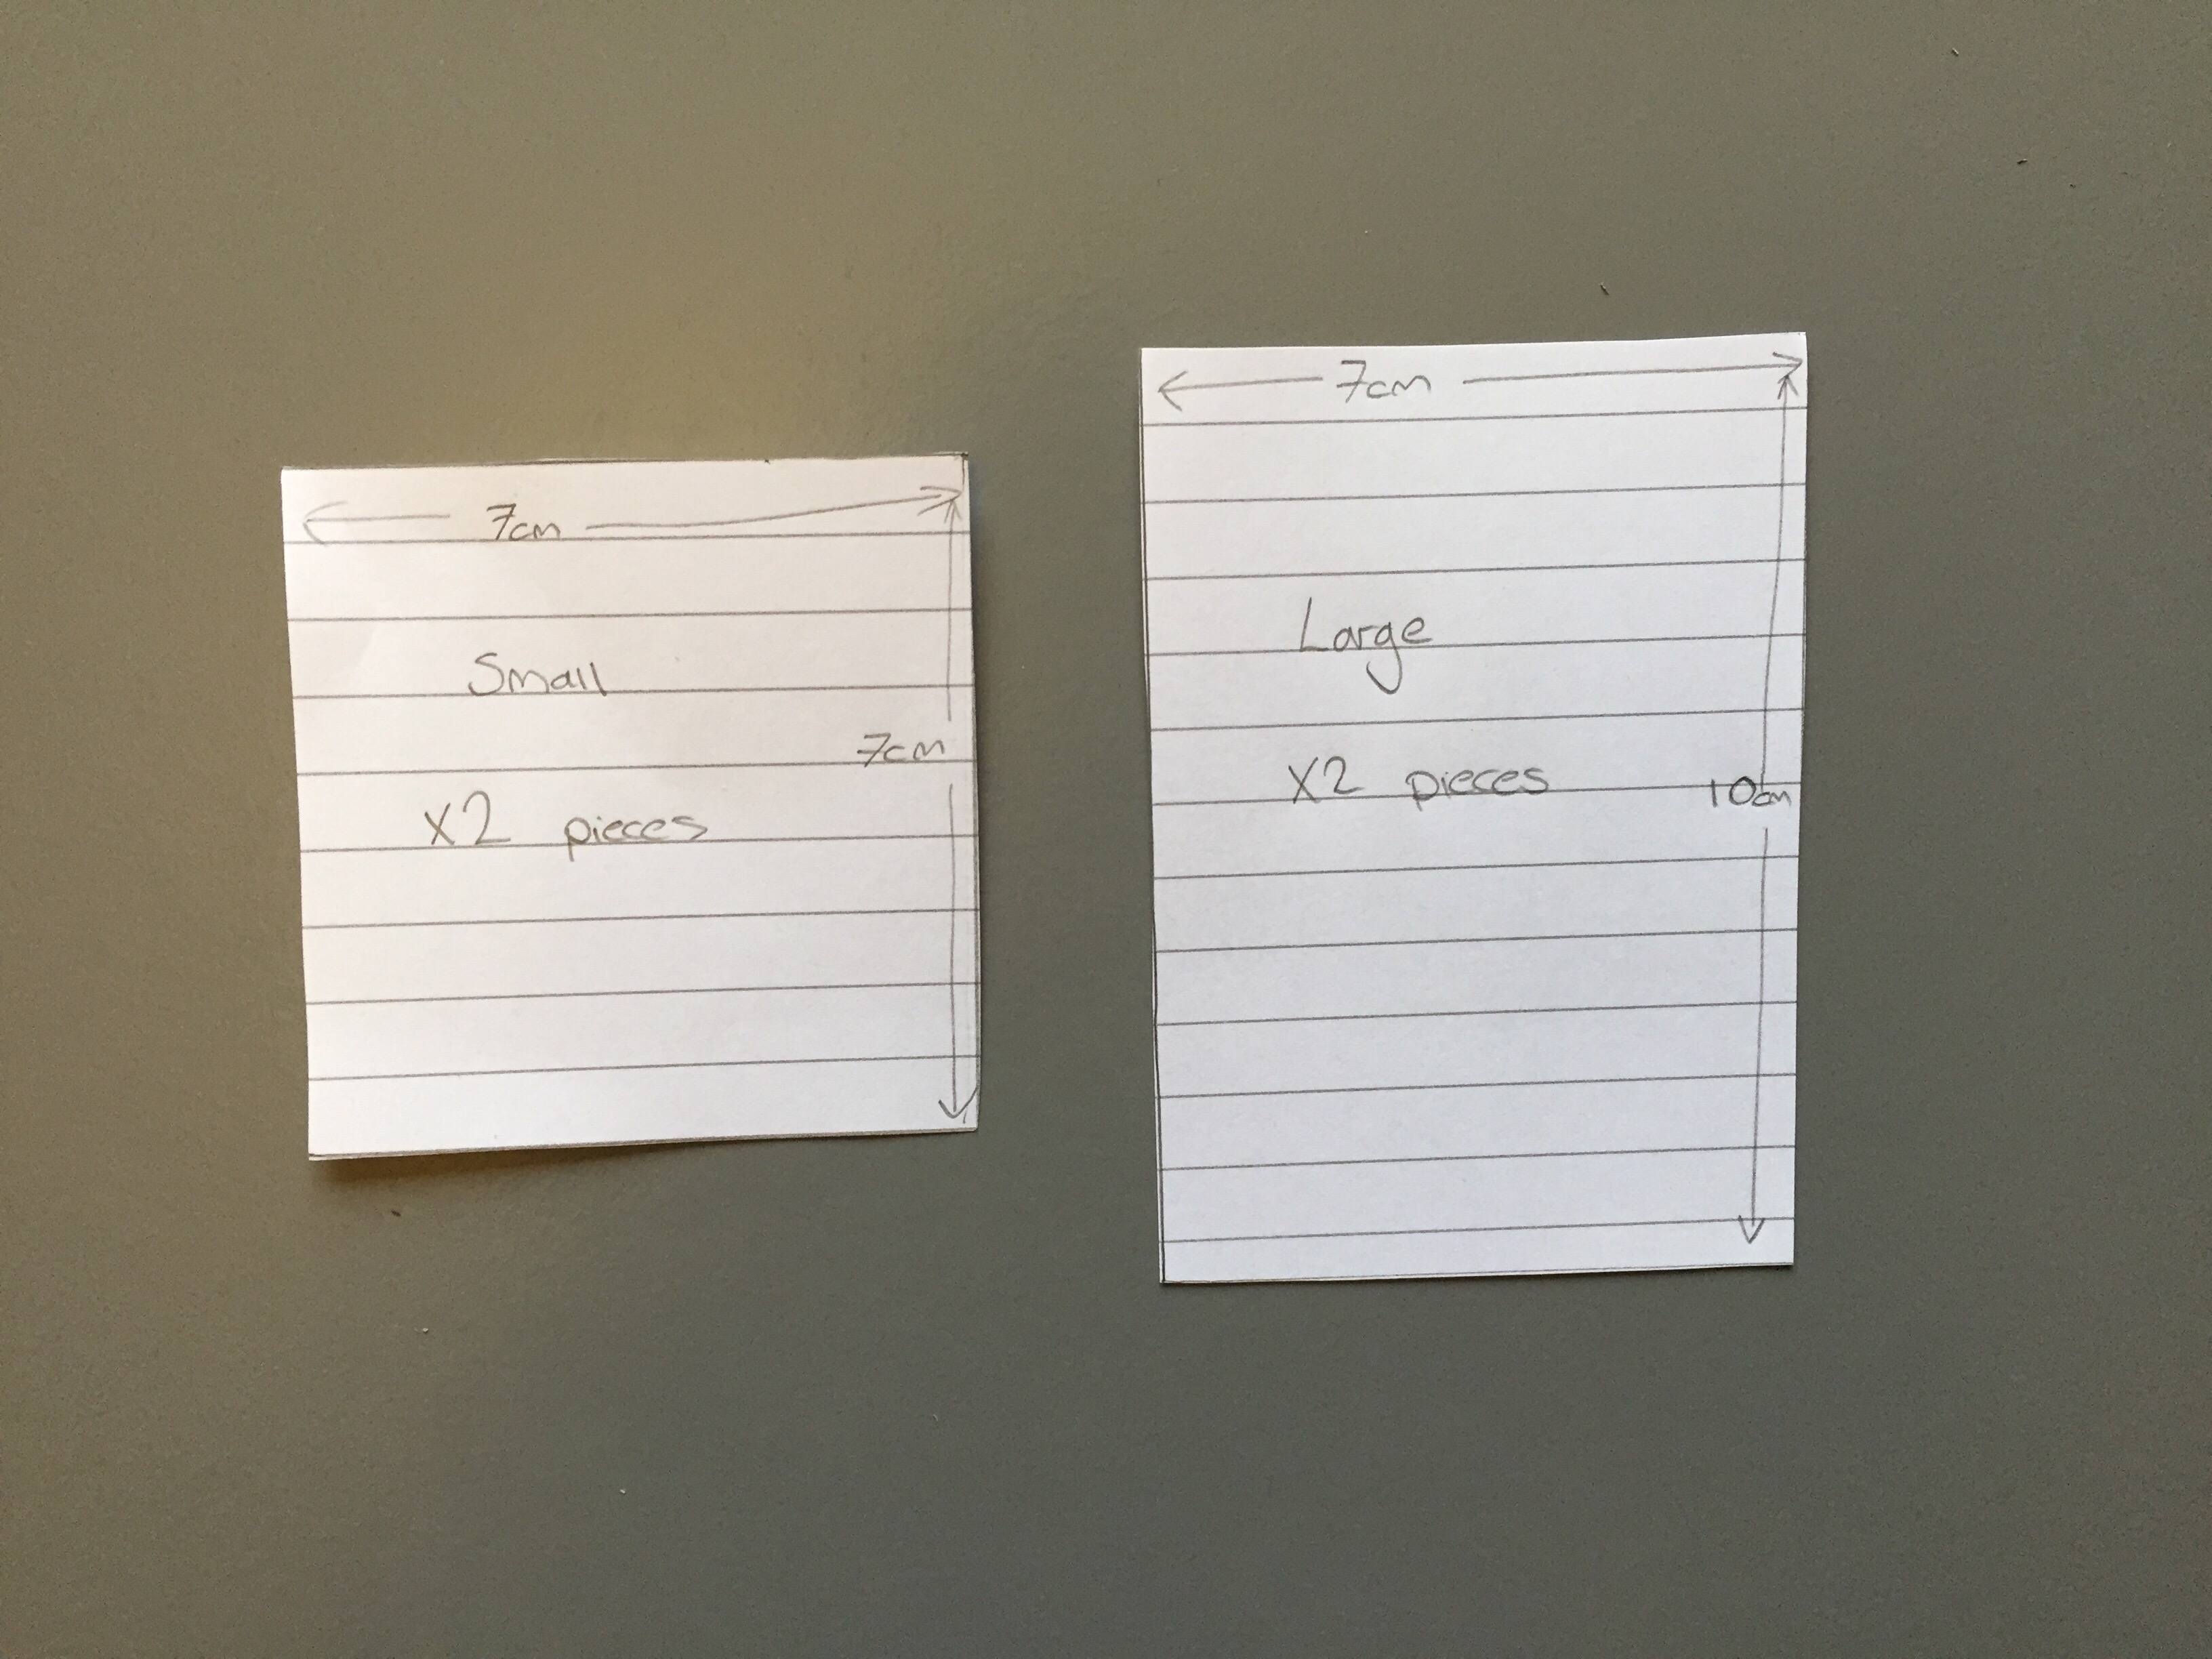 7cm
Small
7cm
x2 pieces
7cm
Large
x2 pieces
10cm